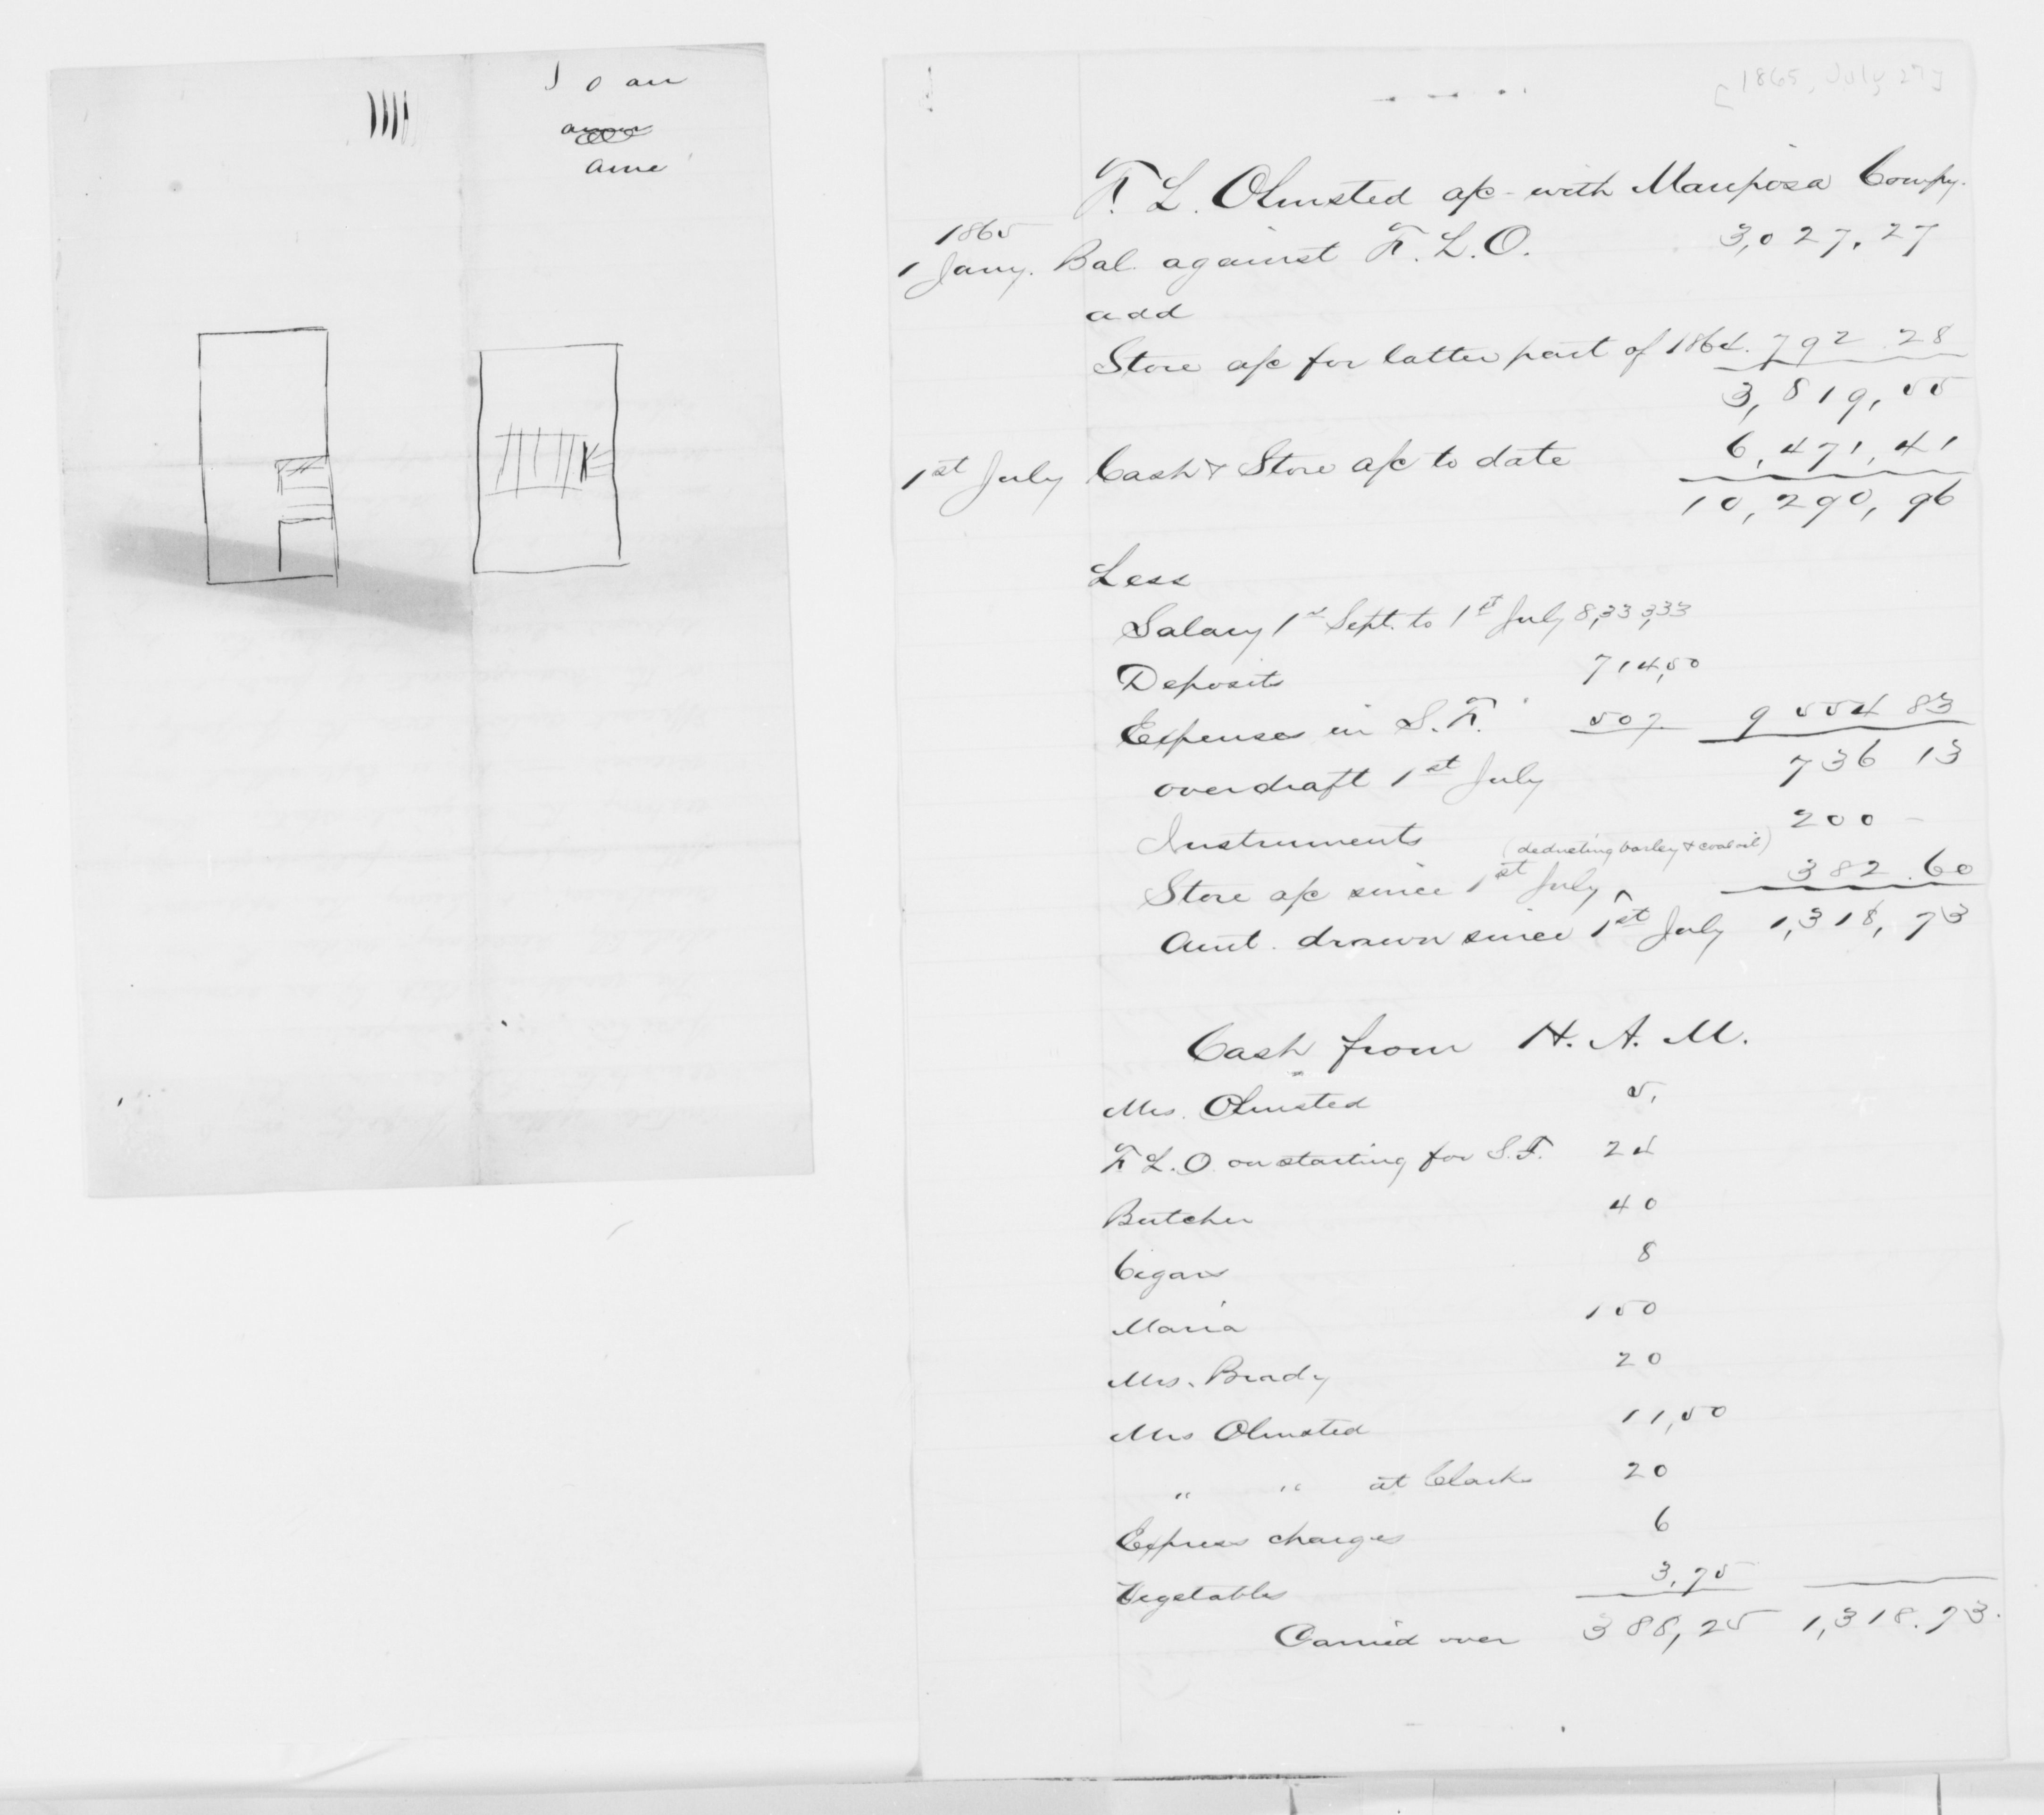 J o au
ame
[1865, July 27]
F. L. Olmsted a/c with Mariposa Compy.
1865
1 Jany. Bal. against F. L. O. 3,027,27
add
Store a/c for latter part of 1864. 792.28
3,819,55
1st July Cash & Store a/c to date 6,471,41
10,290,96
Less
Salary 1st Sept. to 1st July 8,333,33
Deposits 714,50
Expenses in S. F. 507. 9554 83
overdraft 1st July 736 13
Instruments 200 -
(deducting barley & coal oil)
Store a/c since 1st July ^ 382.60
Amt. drawn since 1st July 1,318,73
Cash from H. A. M.
Mrs. Olmsted 5,
F. L. O. on starting for S. F. 24
Butcher 40
Cigars 8
Maria 150
Mrs. Brady 20
Mrs Olmsted 11,50
" " at Clarks 20
Express charges 6
Vegetables 3,75
Carried over 388,25 1,318.73.